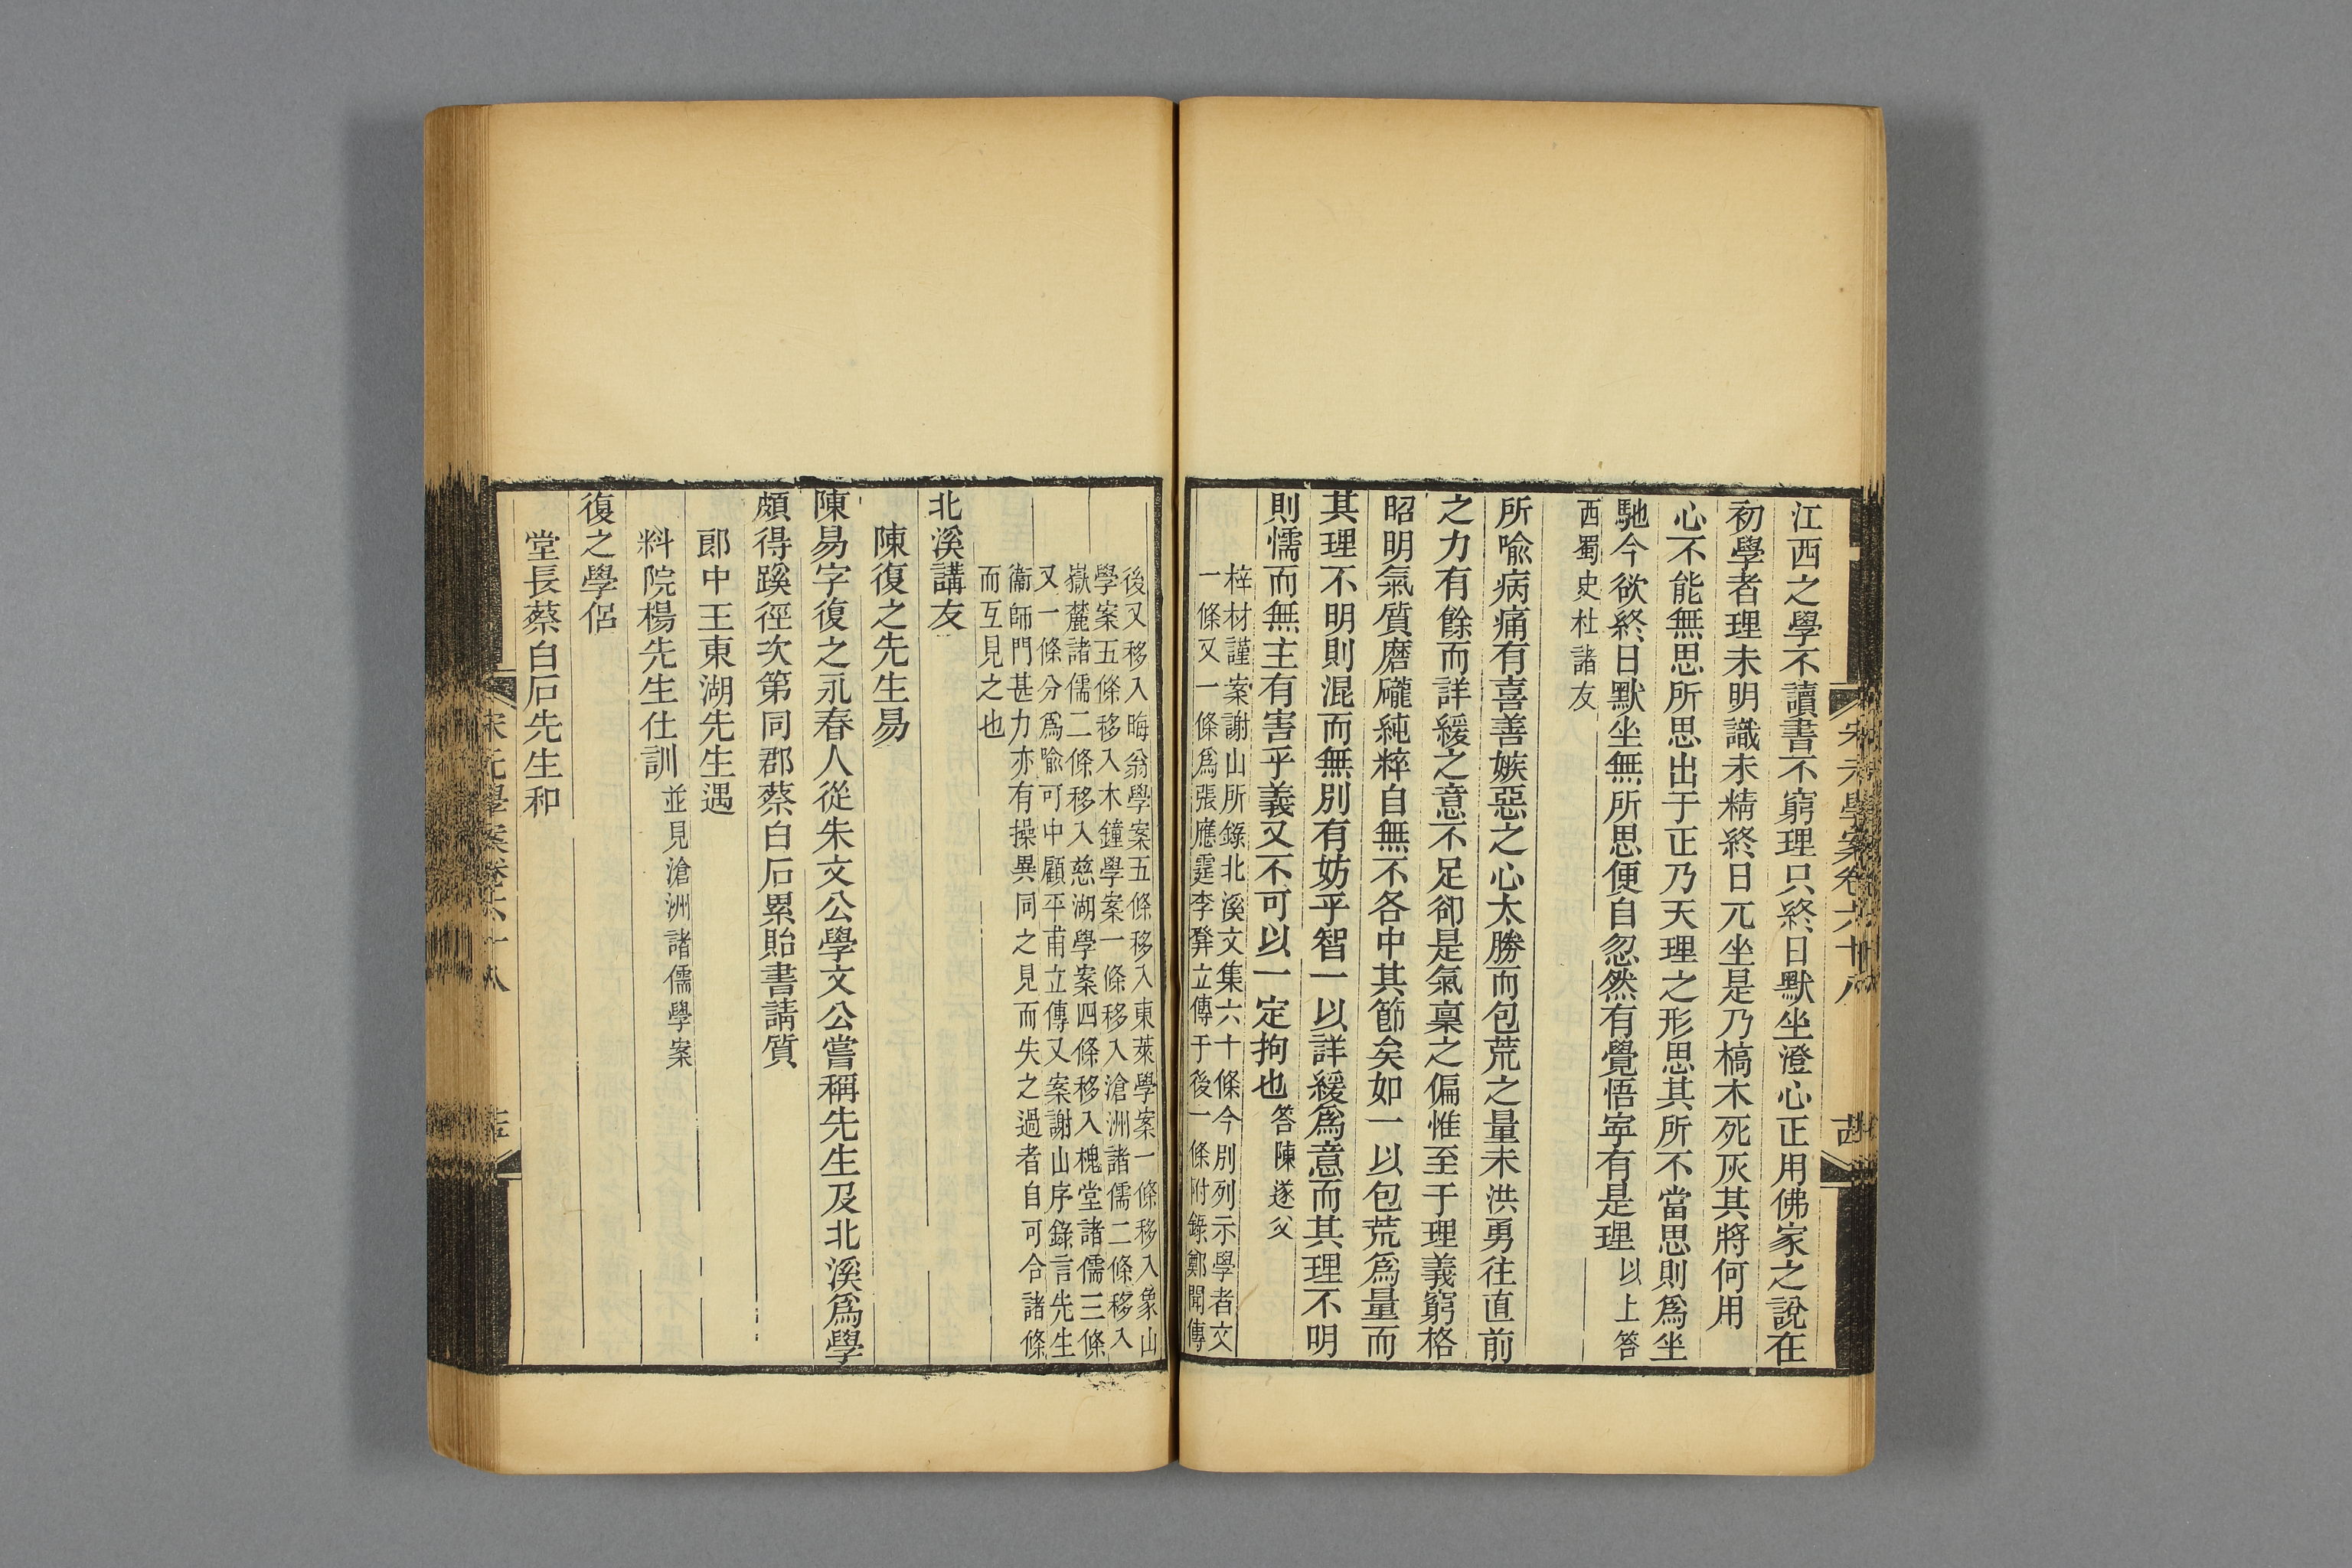 宋元學案卷六十八
江西之學不讀書不窮理只終日默坐澄心正用佛家之說在
初學者理未明識未精終日兀坐是乃槁木死灰其將何用
心不能無思所思出于正乃天理之形思其所不當思則爲坐
馳今欲終日默坐無所思便自忽然有覺悟寧有是理以上答
西蜀史杜諸友
所喻病痛有喜善嫉惡之心太勝而包荒之量未洪勇往直前
之力有餘而詳緩之意不足卻是氣稟之偏惟至于理義窮格
昭明氣質磨礲純粹自無不各中其節矣如一以包荒爲量而
其理不明則混而無別有妨乎智一以詳緩爲意而其理不明
則懦而無主有害乎義又不可以一定拘也答陳遂父
梓材謹案謝山所錄北溪文集六十條今別列示學者文
一條又一條爲張應霆李𢍰立傳于後一條附錄鄭聞傳
後又移入晦翁學案五條移入東萊學案一條移入象山
學案五條移入木鐘學案一條移入滄洲諸儒二條移入
嶽麓諸儒二條移入慈湖學案四條移入槐堂諸儒三條
又一條分爲喻可中顧平甫立傳又案謝山序錄言先生
衞師門甚力亦有操異同之見而失之過者自可合諸條
而互見之也
北溪講友
陳復之先生易
陳易字復之永春人從朱文公學文公嘗稱先生及北溪爲學
頗得蹊徑次第同郡蔡白石累貽書請質
郎中王東湖先生遇
料院楊先生仕訓並見滄洲諸儒學案
復之學侶
堂長蔡白石先生和
宋元學案卷六十八